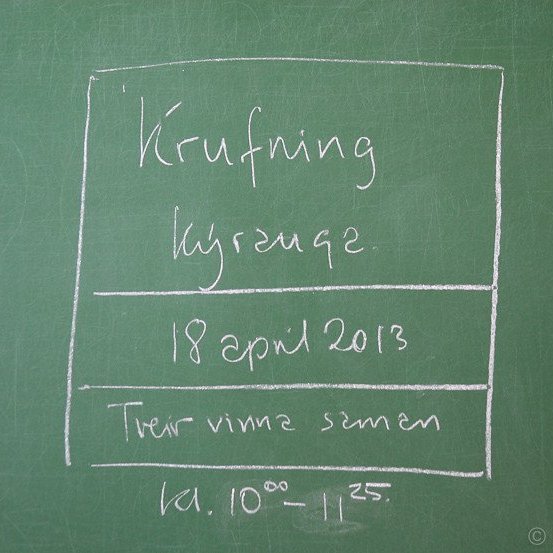 Krufning
kýrauga.
18 april 2013
Tveir vinna saman
kl. 10⁰⁰ - 11²⁵.
©